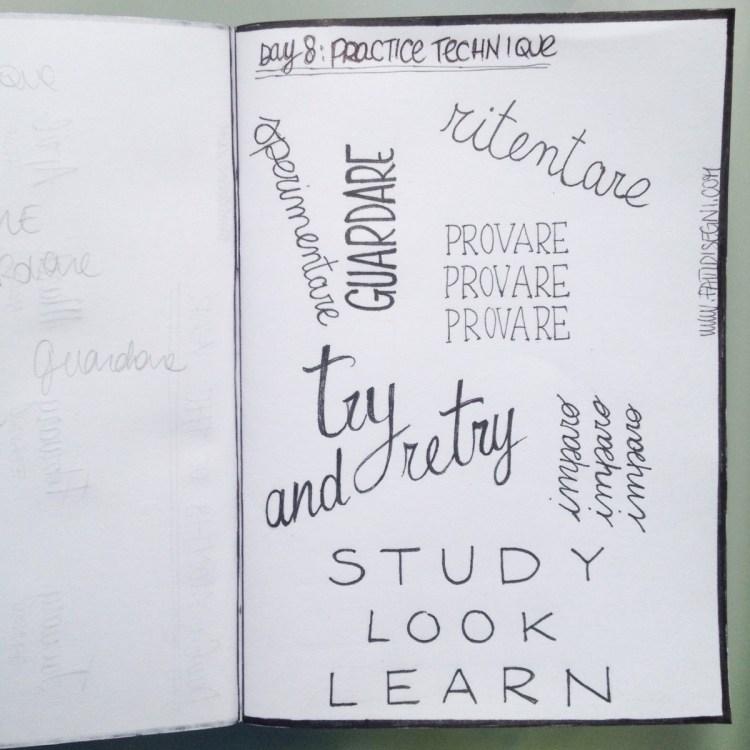 Day 8: PRACTICE TECHNIQUE
sperimentare
GUARDARE
ritentare
PROVARE
PROVARE
PROVARE
www.FATIDISEGNI.COM
try
and retry
imparo
imparo
imparo
STUDY
LOOK
LEARN
Guardare